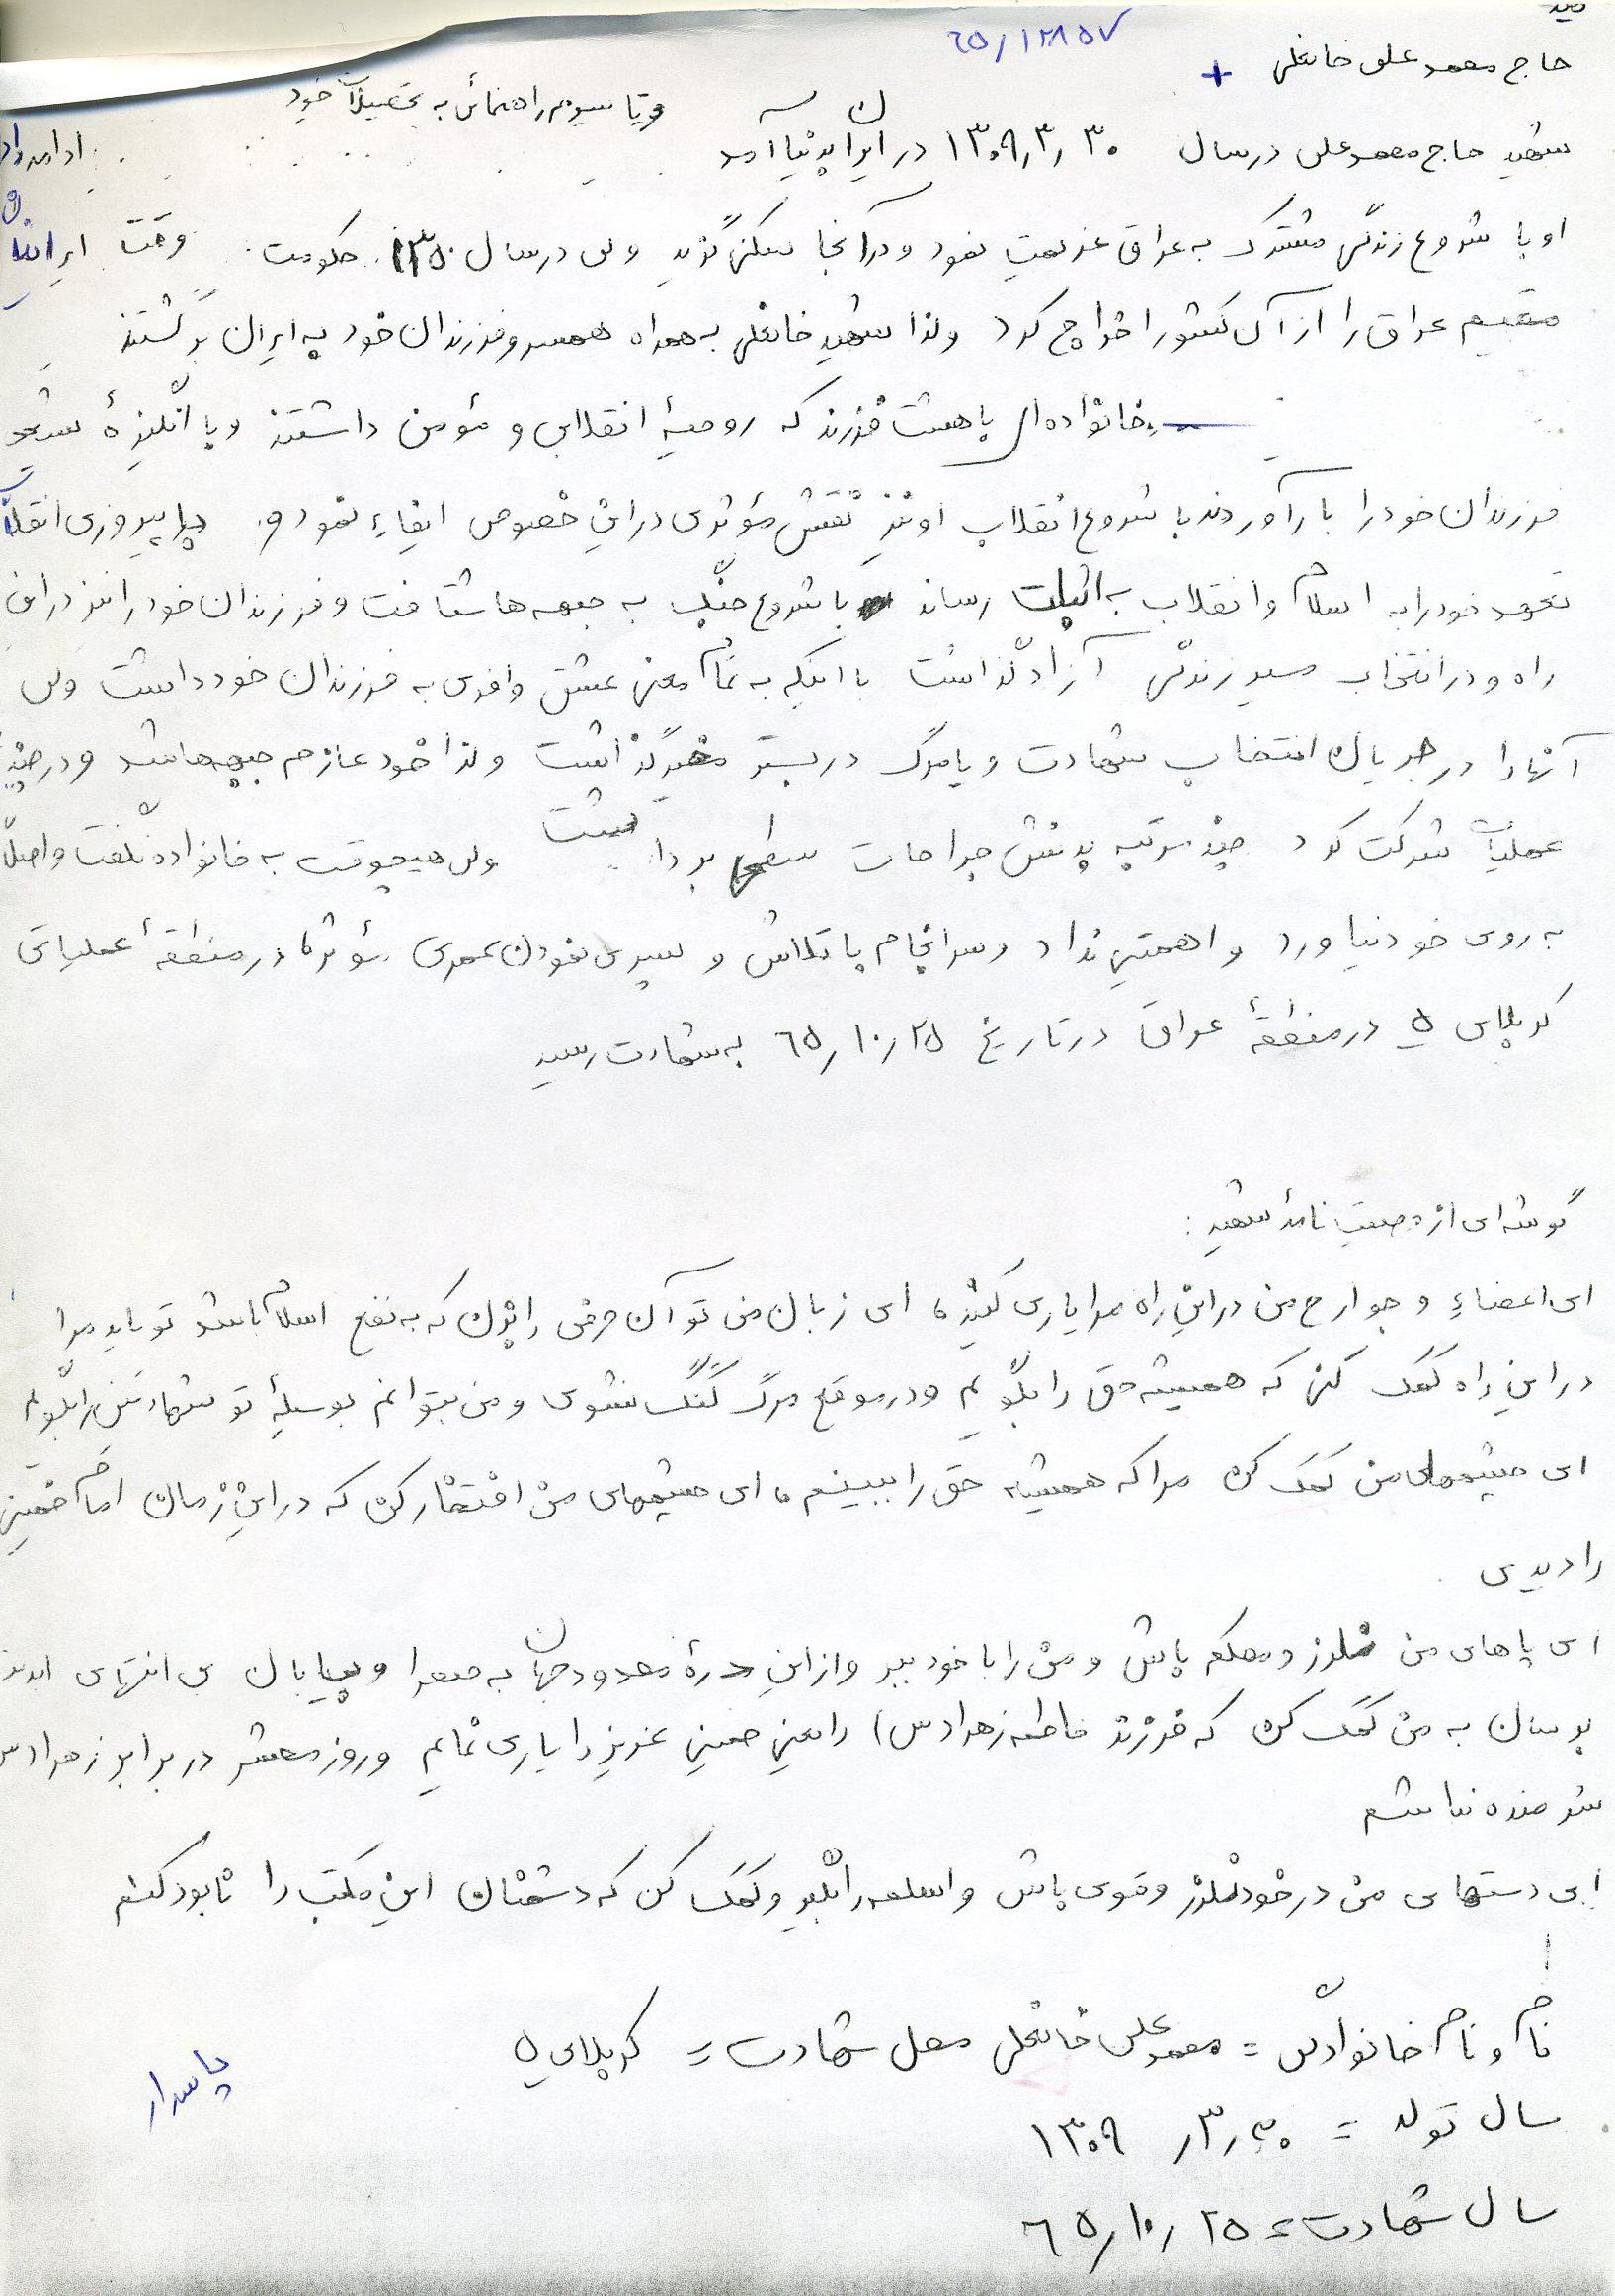 ۶۵/۱۲۸۵۷
حاج محمد علی خانعلی +
و تا سوم راهنمائی به تحصیلات خود ادامه داد
شهید حاج محمد علی در سال ۱۳۰۹٫۳٫۳۰ در ایران بدنیا آمد
او با شروع زندگی مشترک به عراق عزیمت نمود و در آنجا سکنی گزید ولی در سال ۱۳۵۰ حکومت وقت ایرانیان
مقیم عراق را از آن کشور اخراج کرد و لذا شهید خانعلی به همراه همسر و فرزندان خود به ایران برگشتند
خانواده ای با هشت فرزند که روحیهٔ انقلابی و مؤمن داشتند و با انگیزهٔ
فرزندان خود را بار آوردند با شروع انقلاب او نیز نقش مؤثری در این خصوص ایفاء نمود و با پیروزی انقلاب
تعهد خود را به اسلام و انقلاب به اثبات رساند با شروع جنگ به جبهه ها شتافت و فرزندان خود را نیز در این
راه و در انتخاب مسیر زندگی آزاد گذاشت با اینکه به تمام معنی عشق وافری به فرزندان خود داشت ولی
آنها را در جریان انتخاب شهادت و یا مرگ در بستر مخیر گذاشت و لذا خود عازم جبهه ها شد و در چند
عملیات شرکت کرد چند مرتبه بدنش جراحات سطحی برداشت ولی هیچوقت به خانواده نگفت و اصلاً
به روی خود نیاورد و اهمیتی نداد و سرانجام با تلاش و سپری نمودن عمری مؤثر در منطقهٔ عملیاتی
کربلای ۵ در منطقهٔ عراق در تاریخ ۶۵٫۱۰٫۲۵ به شهادت رسید
گوشه ای از وصیت نامهٔ شهید :
ای اعضاء و جوارح من در این راه مرا یاری کنید، ای زبان من تو آن حرفی را بزن که به نفع اسلام باشد تو باید مرا
در این راه کمک کنی که همیشه حق را بگویم و در موقع مرگ گنگ نشوی و من بتوانم بوسیلهٔ تو شهادتین را بگویم
ای چشمهای من کمک کن مرا که همیشه حق را ببینم، ای چشمهای من افتخار کن که در این زمان امام خمینی
را دیدی
ای پاهای من نلرز و محکم باش و من را با خود ببر و از این درهٔ محدود جهان به صحرا و بیابان بی انتهای ابدیت
برسان به من کمک کن که فرزند فاطمه زهرا (س) را یعنی خمینی عزیز را یاری نمایم و روز محشر در برابر زهرا (س
شرمنده نباشم
ای دستهای من در خود نلرز و قوی باش و اسلحه را بگیر و کمک کن که دشمنان این مکتب را نابود کنم
نام و نام خانوادگی = محمد علی خانعلی محل شهادت = کربلای ۵
پاسدار
سال تولد = ۱۳۰۹ ٫۳٫۳۰
سال شهادت = ۶۵٫۱۰٫۲۵